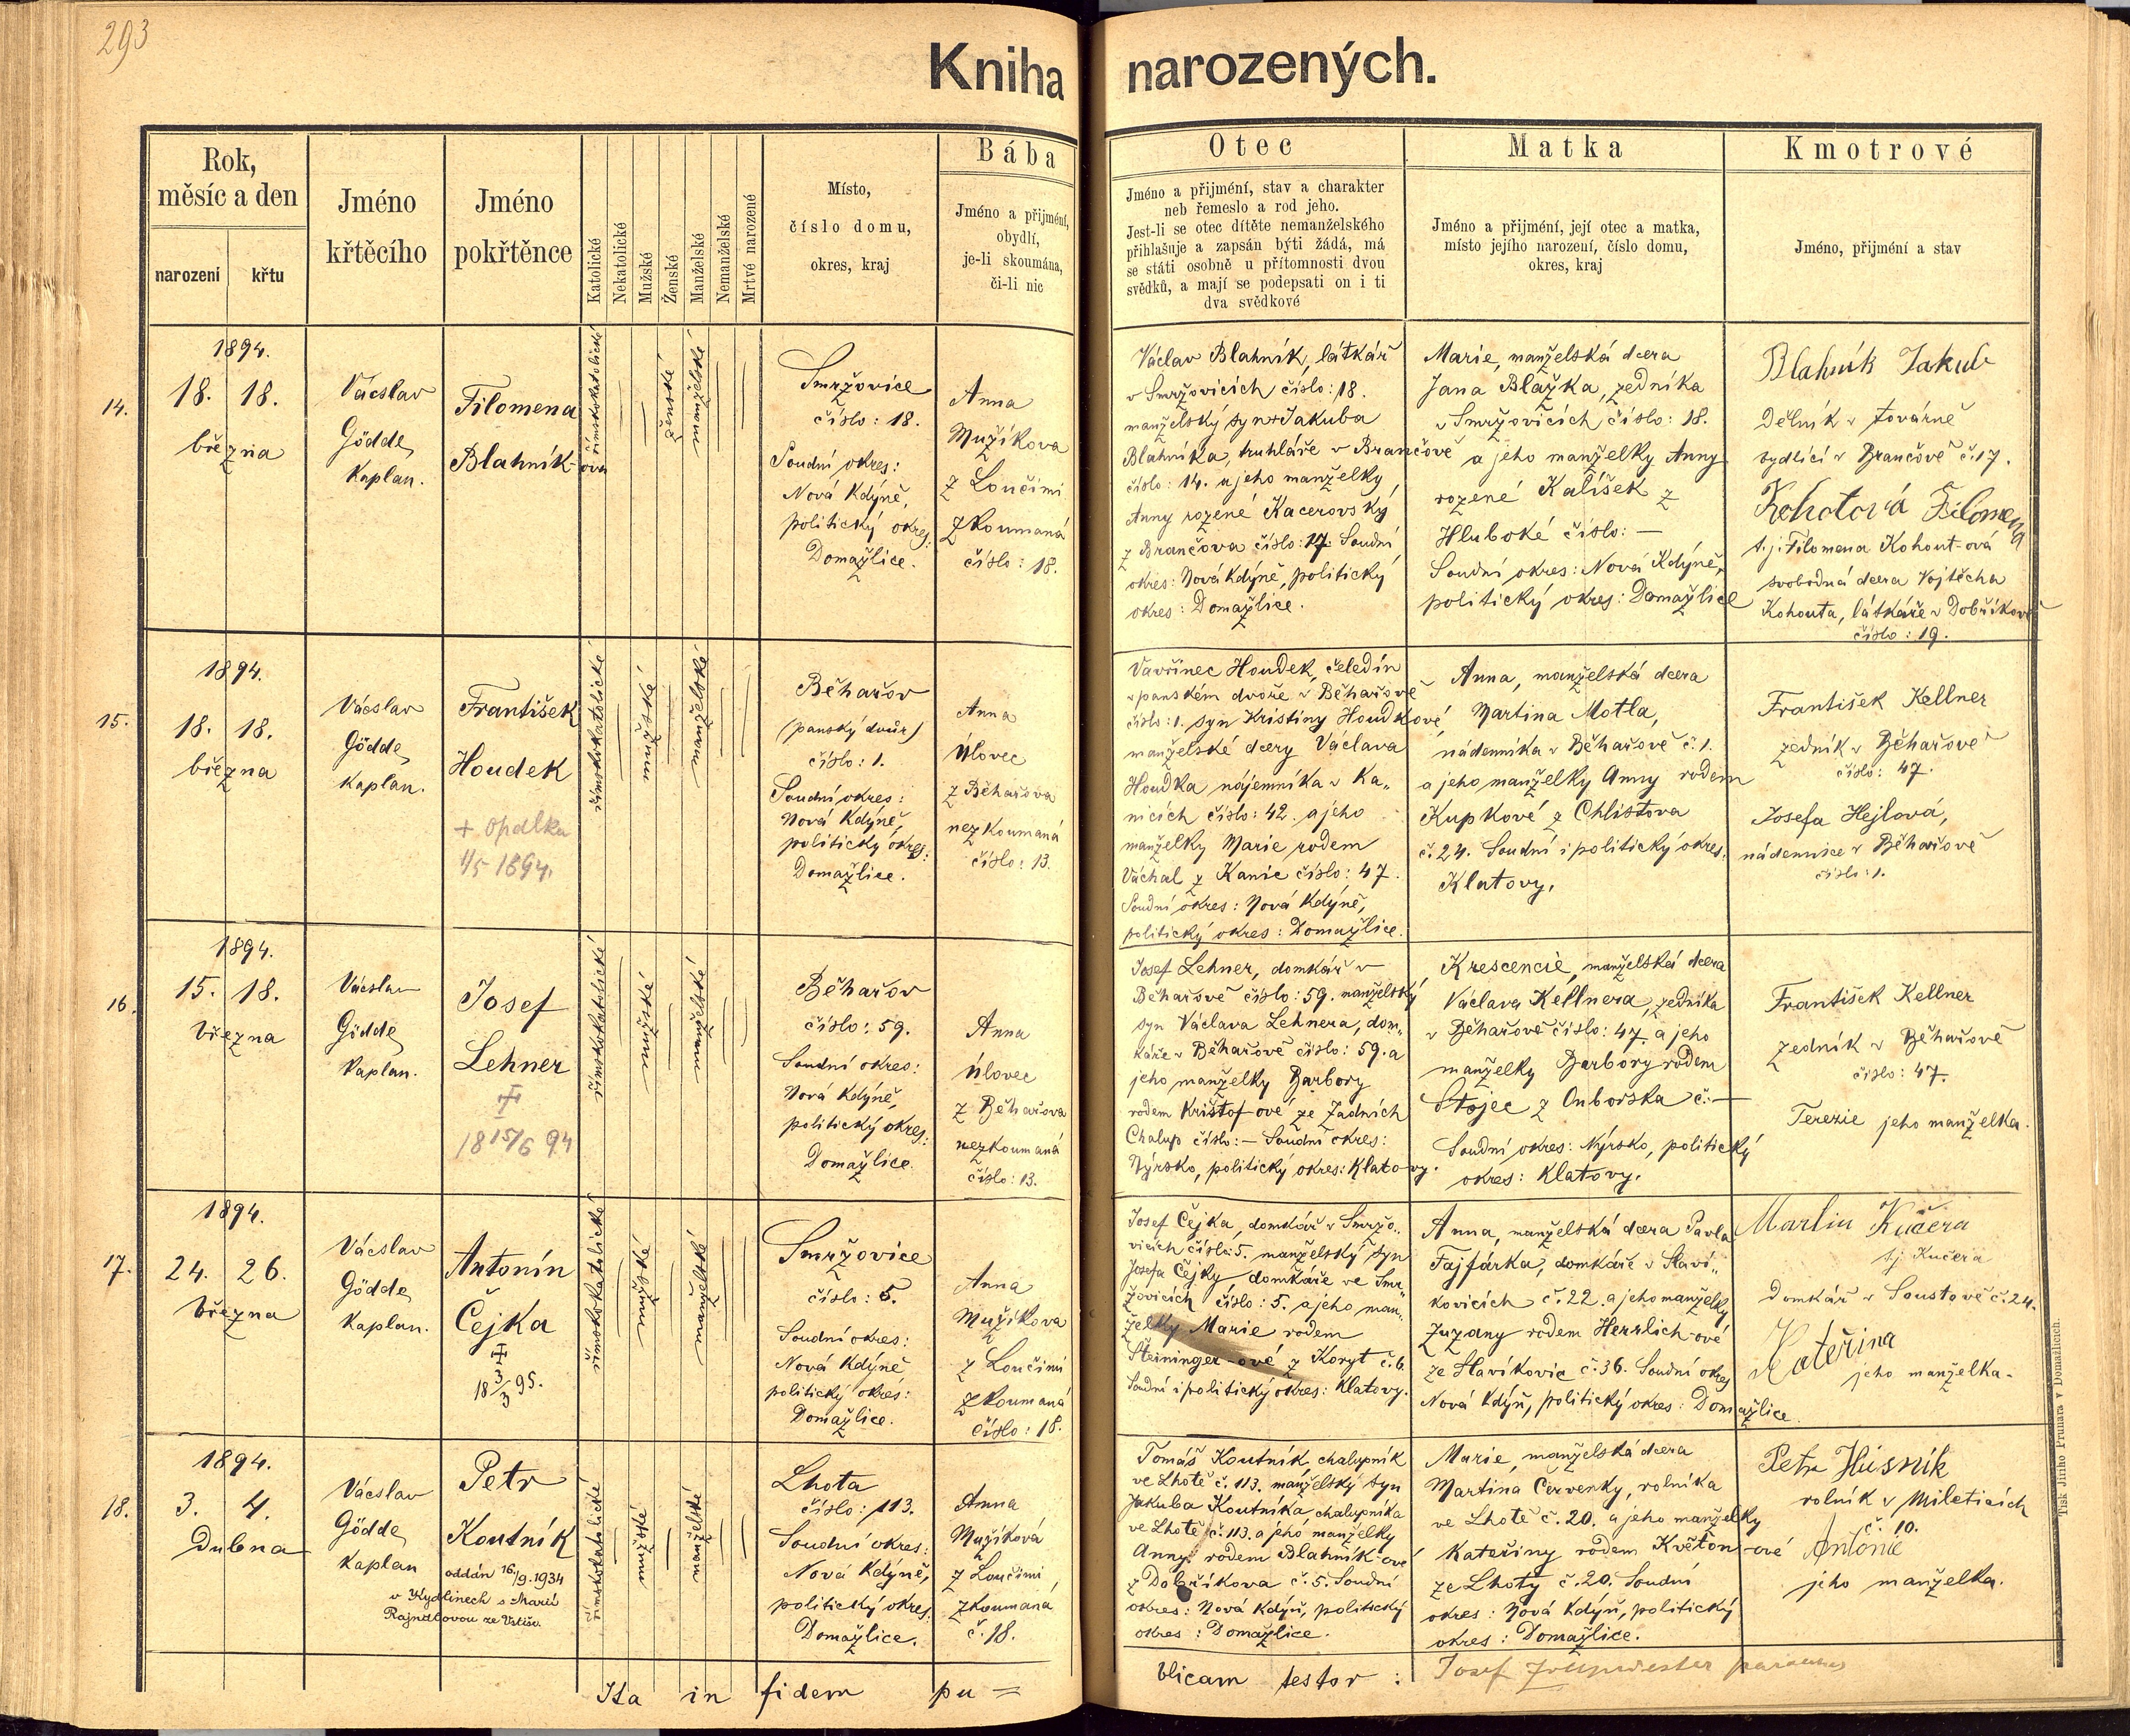 293
Kniha narozených.
Rok,
měsíc a den
narození
křtu
Jméno
křtěcího
Jméno
pokřtěnce
Katolické
Nekatolické
Mužské
Ženské
Manželské
Nemanželské
Mrtvě narozené
Místo,
číslo domu,
okres, kraj
Bába
Jméno a přijmení,
obydlí,
je-li skoumána,
či-li nic
Otec
Jméno a přijmení, stav a charakter
neb řemeslo a rod jeho.
Jest-li se otec dítěte nemanželského
přihlašuje a zapsán býti žádá, má
se státi osobně u přítomnosti dvou
svědků, a mají se podepsati on i ti
dva svědkové
Matka
Jméno a přijmení, její otec a matka,
místo jejího narození, číslo domu,
okres, kraj
Kmotrové
Jméno, přijmení a stav
14.
1894.
18. 18.
března
Václav
Gödde
kaplan.
Filomena
Blahník-ova
římskokatolické
ženské
manželské
Smržovice
číslo: 18.
Soudní okres:
Nová Kdýně,
politický okres:
Domažlice.
Anna
Mužíkova
z Loučimi
zkoumaná
číslo: 18.
Václav Blahník, látkář
v Smržovicích číslo: 18.
manželský syn Jakuba
Blahníka, truhláře v Brančově
číslo: 14. a jeho manželky,
Anny rozené Kacerovský
z Brančova číslo: 17. Soudní
okres: Nová Kdýně, politický
okres: Domažlice.
Marie, manželská dcera
Jana Blažka, zedníka
v Smržovicích číslo: 18.
a jeho manželky Anny
rozené Kalíšek z
Hluboké číslo: —
Soudní okres: Nová Kdýně,
politický okres: Domažlice
Blahník Jakub
Dělník v továrně
bydlící v Brančově č. 17.
Kohotová Filomena
t. j. Filomena Kohout-ová
svobodná dcera Vojtěcha
Kohouta, látkáře v Dobříkově
číslo: 19.
15.
1894.
18. 18.
března
Václav
Gödde
kaplan.
František
Houdek
+ Opálka
1/5 1894.
římskokatolické
mužské
manželské
Běhařov
(panský dvůr)
číslo: 1.
Soudní okres:
Nová Kdýně,
politický okres:
Domažlice.
Anna
Úlovec
z Běhařova
nezkoumaná
číslo: 13.
Vavřinec Houdek, čeledín
v panském dvoře v Běhařově
číslo: 1. syn Kristiny Houdkové
manželské dcery Václava
Houdka nájemníka v Ka„
nicích číslo: 42. a jeho
manželky Marie rodem
Váchal z Kanic číslo: 47.
Soudní okres: Nová Kdýně,
politický okres: Domažlice.
Anna, manželská dcera
Martina Motla,
nádenníka v Běhařově č. 1.
a jeho manželky Anny rodem
Kupkové z Chlistova
č. 24. Soudní i politický okres:
Klatovy.
František Kellner
zedník v Běhařově
číslo: 47.
Josefa Hejlová,
nádennice v Běhařově
číslo: 1.
16.
1894.
15. 18.
března
Václav
Gödde
kaplan.
Josef
Lehner
18 15/6 94
římskokatolické
mužské
manželské
Běhařov
číslo: 59.
Soudní okres:
Nová Kdýně,
politický okres:
Domažlice.
Anna
Úlovec
z Běhařova
nezkoumaná
číslo: 13.
Josef Lehner, domkář v
Běhařově číslo: 59. manželský
syn Václava Lehnera, dom„
káře v Běhařově číslo: 59. a
jeho manželky Barbory
rodem Krištof-ové ze Zadních
Chalup číslo: — Soudní okres:
Nýrsko, politický okres: Klatovy.
Krescencie, manželská dcera
Václava Kellnera, zedníka
v Běhařově číslo: 47. a jeho
manželky Barbory rodem
Stojec z Outborska č. —
Soudní okres: Nýrsko, politický
okres: Klatovy.
František Kellner
zedník v Běhařově
číslo: 47.
Terezie jeho manželka.
17.
1894.
24. 26.
března
Václav
Gödde
kaplan.
Antonín
Čejka
18 3/3 95.
římskokatolické
mužské
manželské
Smržovice
číslo: 5.
Soudní okres:
Nová Kdýně
politický okres:
Domažlice.
Anna
Mužíkova
z Loučimi
zkoumaná
číslo: 18.
Josef Čejka, domkář v Smržo„
vicích číslo: 5. manželský syn
Josefa Čejky, domkáře ve Smr„
žovicích číslo: 5. a jeho man„
želky Marie rodem
Steininger-ové z Koryt č. 6.
Soudní i politický okres: Klatovy.
Anna, manželská dcera Pavla
Fajfárka, domkáře v Slaví„
kovicích č. 22. a jeho manželky
Zuzany rodem Herrlich-ové
ze Slavíkovic č. 36. Soudní okres
Nová Kdýň, politický okres: Domažlice.
Martin Kučera
tj. Kučera
domkář v Soustově č. 24.
Kateřina
jeho manželka.
18.
1894.
3. 4.
Dubna
Václav
Gödde
kaplan
Petr
Koutník
oddán 16./9. 1934
v Kydlinech s Marií
římskokatolické
mužské
manželské
Lhota
číslo: 113.
Soudní okres:
Nová Kdýně,
politický okres:
Domažlice.
Anna
Mužíková
z Loučimi
zkoumaná
č. 18.
Tomáš Koutník, chalupník
ve Lhotě č. 113. manželský syn
Jakuba Koutníka, chalupníka
ve Lhotě č. 113. a jeho manželky
Anny rodem Blahník-ové
z Dobříkova č. 5. Soudní
okres: Nová Kdýň, politický
okres: Domažlice.
Marie, manželská dcera
Martina Červenky, rolníka
ve Lhotě č. 20. a jeho manželky
Kateřiny rodem Květoň-ové
ze Lhoty č. 20. Soudní
okres: Nová Kdýň, politický
okres: Domažlice.
Petr Husník
rolník v Mileticích
č. 10.
Antonie
jeho manželka.
Ita in fidem pu =
blicam testor: Josef
Tisk Jiřího Prunara v Domažlicích.